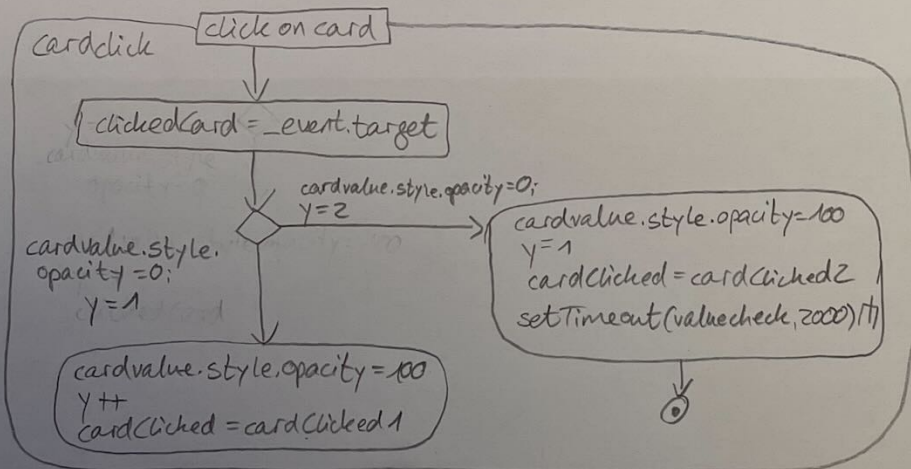 cardclick
click on card
clickedCard = _event.target
cardvalue.style.opacity=0;
y=2
cardvalue.style.
opacity=0;
y=1
cardvalue.style.opacity=100
y=1
cardClicked = cardClicked2
setTimeout(valuecheck,2000)
cardvalue.style.opacity=100
y++
cardClicked = cardClicked1